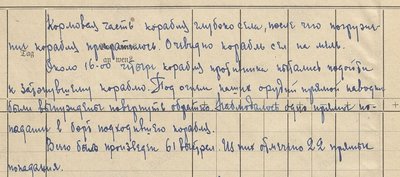 Кормовая часть корабля глубоко села, после чего погруже-
ние корабля прекратилось. Очевидно корабль сел на мель.
Tag
an wen?
Около 16-00 четыре корабля противника пытались подойти
к затонувшему кораблю. Под огнем наших орудий прямой наводки
были вынуждены повернуть обратно. Наблюдалось одно прямое по-
падание в борт подходившего корабля.
Всего было произведен 61 выстрел. Из них отмечено 22 прямых
попадания.